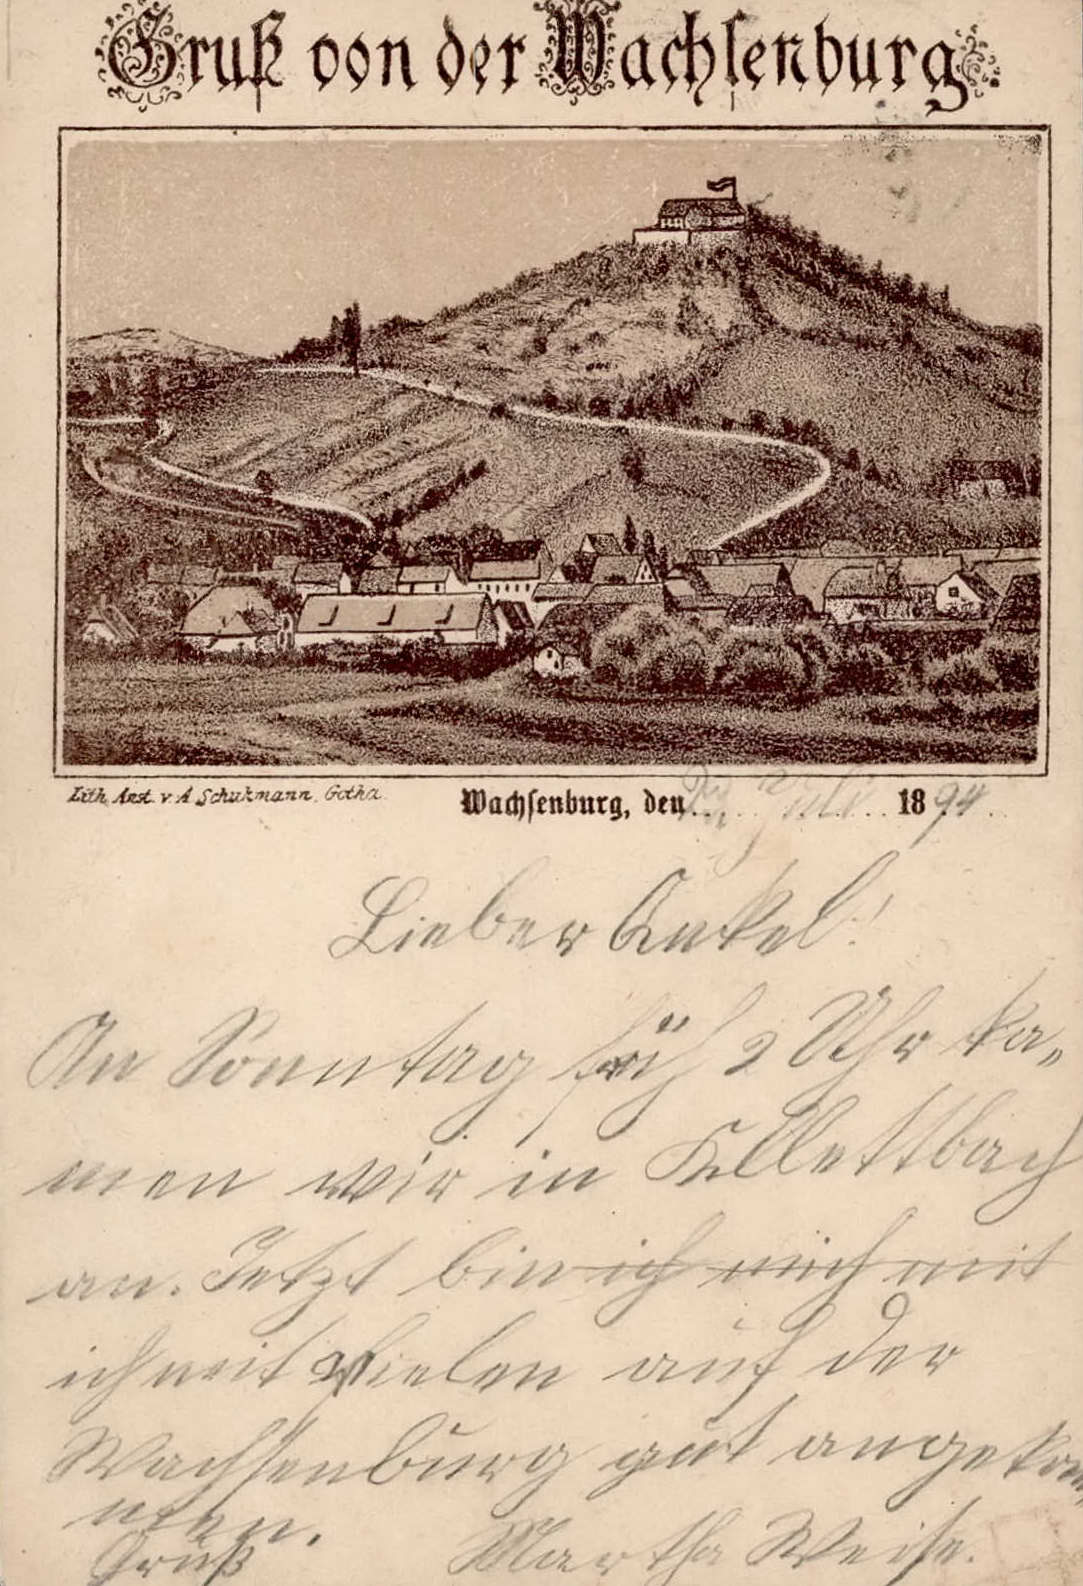 Gruß von der Wachsenburg.
Lith. Anst. v. A. Schukmann, Gotha.
Wachsenburg, den Juli 1894.
Lieber Onkel!
Am Sonntag früh 2 Uhr ka-
men wir in Klettbach
an. Jetzt bin ich mich mit
ich mit Vielen auf der
Wachsenburg gut angekom
men.
Gruß Martha Weise.